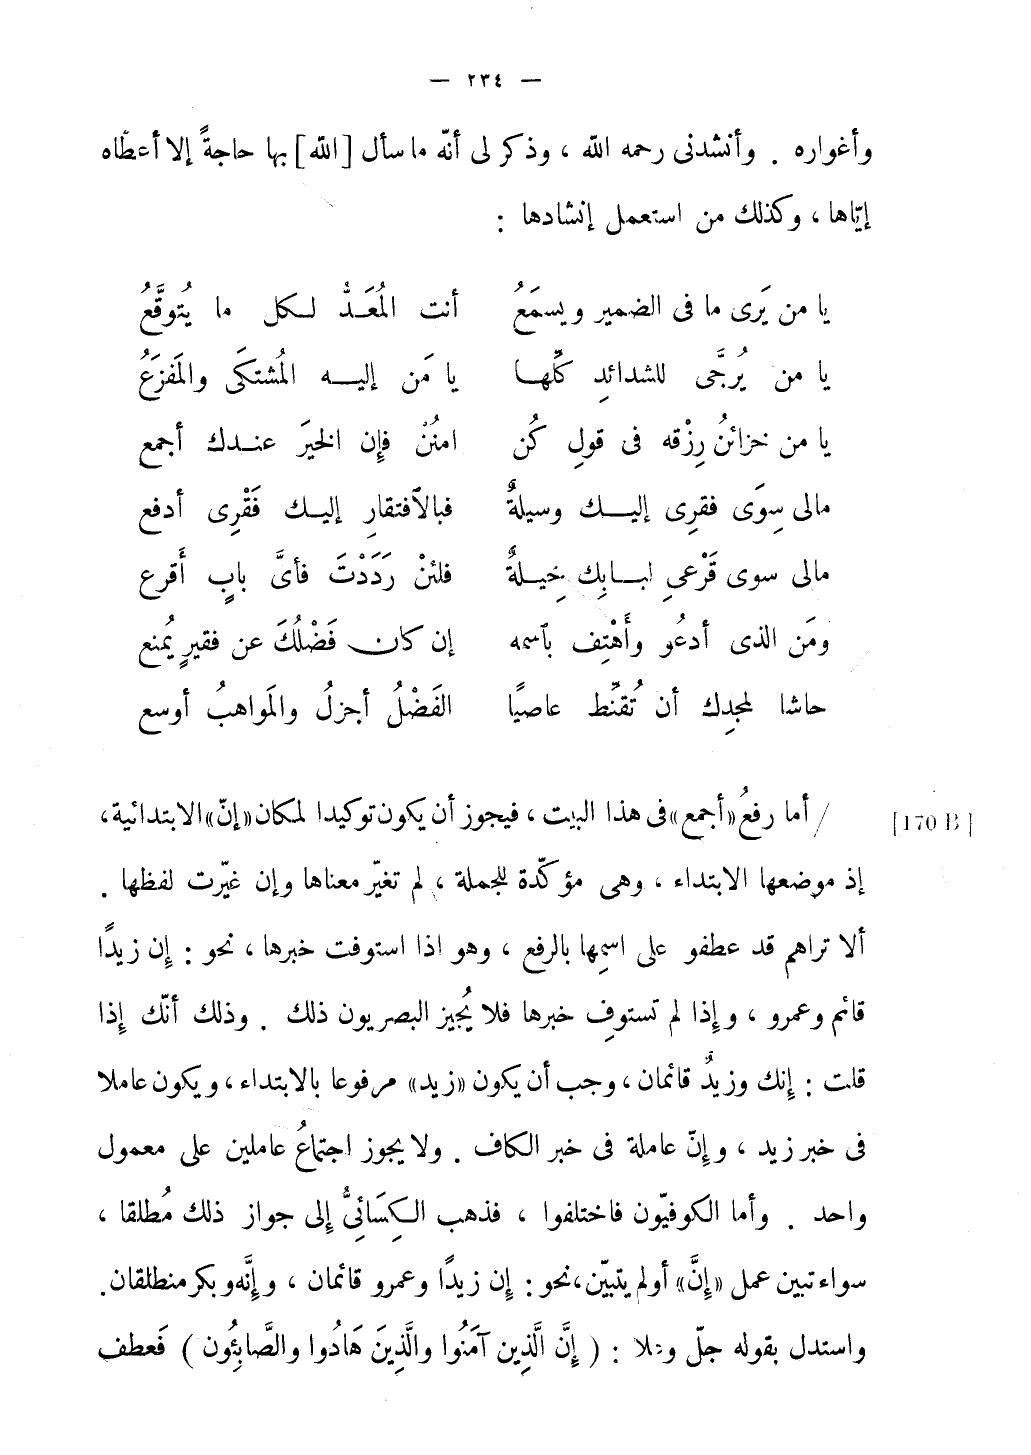 — ٢٣٤ —
وأغواره . وأنشدنى رحمه الله ، وذكر لى أنّه ما سأل [الله] بها حاجةً إلا أعطاه
إيّاها ، وكذلك من استعمل إنشادها :
يا من يَرى ما فى الضمير ويسمَعُ أنت المُعَدُّ لكل ما يُتوقَّعُ
يا من يُرجَّى للشدائدِ كلِّها يا مَن إليه المُشتكَى والمَفزَعُ
يا من خزائنُ رِزْقه فى قولِ كُن امنُنْ فإن الخيرَ عندك أجمع
مالى سِوَى فقرِى إليك وسيلةٌ فبالاَفتقارِ إليك فَقْرِى أدفع
مالى سوى قَرْعىِ لبابِك حِيلةٌ فلئنْ رَدَدْتَ فأىَّ بابٍ أَقرع
ومَن الذى أدعُو وأَهْتِف بٱسمه إن كان فَضْلُكَ عن فقيرٍ يُمنع
حاشا لمجدِك أن تُقنِّط عاصيًا الفَضْلُ أجزلُ والمَواهبُ أوسع
/ أما رفعُ «أجمع» فى هذا البيت ، فيجوز أن يكون توكيدا لمكان «إنّ» الابتدائية ، [170 B]
إذ موضعها الابتداء ، وهى مؤكّدة للجملة ، لم تغيّر معناها وإن غيّرت لفظها .
ألا تراهم قد عطفو على اسمِها بالرفع ، وهو اذا استوفت خبرها ، نحو : إن زيدًا
قائم وعمرو ، وإذا لم تستوفِ خبرها فلا يُجيز البصريون ذلك . وذلك أنّك إذا
قلت : إنك وزيدٌ قائمان ، وجب أن يكون «زيد» مرفوعا بالابتداء ، ويكون عاملا
فى خبر زيد ، وإنّ عاملة فى خبر الكاف . ولا يجوز اجتماعُ عاملين على معمول
واحد . وأما الكوفيّون فاختلفوا ، فذهب الكِسَائِىُّ إلى جواز ذلك مُطلقا ،
سواء تبين عمل «إنَّ» أو لم يتبيّن ، نحو : إن زيدًا وعمرو قائمان ، وإنَّه وبكر منطلقان .
واستدل بقوله جلّ وعلا : ( إِنَّ الَّذِين آمَنُوا والَّذِينَ هَادُوا والصَّابِئُون ) فَعطف